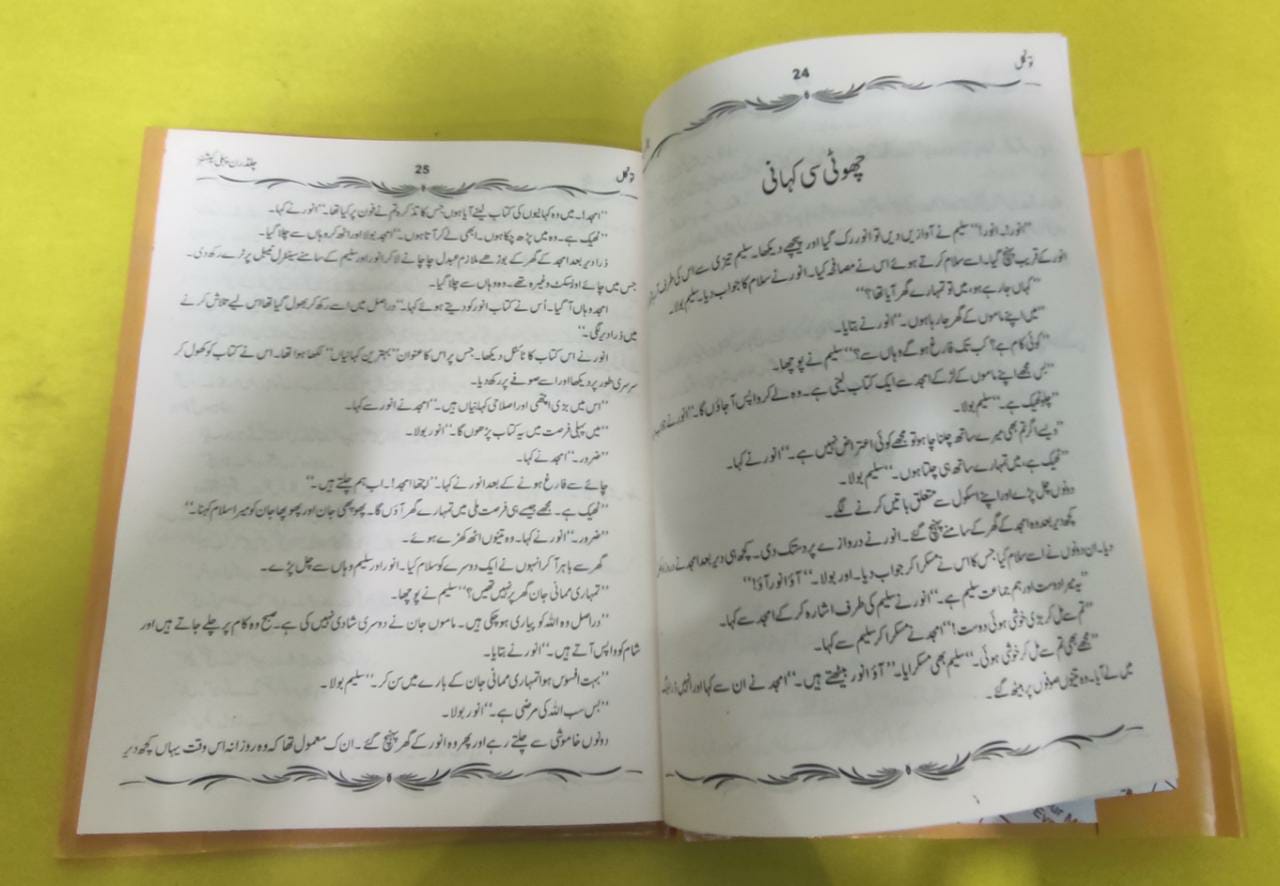 توکل
24
چھوٹی سی کہانی
”انور!۔انور!“ سلیم نے آوازیں دیں تو انور رک گیا اور پیچھے دیکھا۔ سلیم تیزی سے اس کی طرف
انور کے قریب پہنچ گیا۔ اسے سلام کرتے ہوئے اس نے مصافحہ کیا۔ انور نے سلام کا جواب دیا۔ سلیم بولا۔
”کہاں جا رہے ہو، میں تو تمہارے گھر آیا تھا؟“
”میں اپنے ماموں کے گھر جا رہا ہوں۔“ انور نے بتایا۔
”کوئی کام ہے؟ کب تک فارغ ہو گے وہاں سے؟“ سلیم نے پوچھا۔
”بس مجھے اپنے ماموں کے لڑکے امجد سے ایک کتاب لینی ہے۔ وہ لے کر واپس آ جاؤں گا۔“ انور نے
”چلو ٹھیک ہے۔“ سلیم بولا۔
”ویسے اگر تم بھی میرے ساتھ چلنا چاہو تو مجھے کوئی اعتراض نہیں ہے۔“ انور نے کہا۔
”ٹھیک ہے، میں تمہارے ساتھ ہی چلتا ہوں۔“ سلیم بولا۔
دونوں چل پڑے اور اپنے اسکول سے متعلق باتیں کرنے لگے۔
کچھ دیر بعد وہ امجد کے گھر کے سامنے پہنچ گئے۔ انور نے دروازے پر دستک دی۔ کچھ ہی دیر بعد امجد نے
دیا۔ ان دونوں نے اسے سلام کیا، جس کا اس نے مسکرا کر جواب دیا۔ اور بولا۔ ”آؤ انور آؤ!“
”یہ میرا دوست اور ہم جماعت سلیم ہے۔“ انور نے سلیم کی طرف اشارہ کر کے امجد سے کہا۔
”تم سے مل کر بڑی خوشی ہوئی دوست!“ امجد نے مسکرا کر سلیم سے کہا۔
”مجھے بھی تم سے مل کر خوشی ہوئی۔“ سلیم بھی مسکرایا۔ ”آؤ انور بیٹھتے ہیں۔“ امجد نے ان سے کہا اور انہیں
میں لے آیا۔ وہ تینوں صوفوں پر بیٹھ گئے۔
توکل
25
چلڈرن پبلی کیشنز
”امجد!۔ میں وہ کہانیوں کی کتاب لینے آیا ہوں جس کا تذکرہ تم نے فون پر کیا تھا۔“ انور نے کہا۔
”ٹھیک ہے۔ وہ میں پڑھ چکا ہوں۔ ابھی لے کر آتا ہوں۔“ امجد بولا اور اٹھ کر وہاں سے چلا گیا۔
ذرا دیر بعد امجد کے گھر کے بوڑھے ملازم عبدل چاچا نے لا کر انور اور سلیم کے سامنے سینٹرل ٹیبل پر ٹرے رکھ دی۔
جس میں چائے اور بسکٹ وغیرہ تھے۔ وہ وہاں سے چلا گیا۔
امجد وہاں آ گیا۔ اُس نے کتاب انور کو دیتے ہوئے کہا۔ ”دراصل میں اسے رکھ کر بھول گیا تھا اس لیے تلاش کرنے
میں ذرا دیر لگی۔“
انور نے اس کتاب کا ٹائٹل دیکھا۔ جس پر اس کا عنوان ”بہترین کہانیاں“ لکھا ہوا تھا۔ اس نے کتاب کو کھول کر
سرسری طور پر دیکھا اور اسے صوفے پر رکھ دیا۔
”اس میں بڑی اچھی اور اصلاحی کہانیاں ہیں۔“ امجد نے انور سے کہا۔
”میں پہلی فرصت میں یہ کتاب پڑھوں گا۔“ انور بولا۔
”ضرور۔“ امجد نے کہا۔
چائے سے فارغ ہونے کے بعد انور نے کہا۔ ”اچھا امجد!۔ اب ہم چلتے ہیں۔“
”ٹھیک ہے۔ مجھے جیسے ہی فرصت ملی میں تمہارے گھر آؤں گا۔ پھوپھی جان اور پھوپھا جان کو میرا سلام کہنا۔“
”ضرور۔“ انور نے کہا۔ وہ تینوں اٹھ کھڑے ہوئے۔
گھر سے باہر آ کر انہوں نے ایک دوسرے کو سلام کیا۔ انور اور سلیم وہاں سے چل پڑے۔
”تمہاری ممانی جان گھر پر نہیں تھیں؟“ سلیم نے پوچھا۔
”دراصل وہ اللہ کو پیاری ہو چکی ہیں۔ ماموں جان نے دوسری شادی نہیں کی ہے۔ صبح وہ کام پر چلے جاتے ہیں اور
شام کو واپس آتے ہیں۔“ انور نے بتایا۔
”بہت افسوس ہوا تمہاری ممانی جان کے بارے میں سن کر۔“ سلیم بولا۔
”بس سب اللہ کی مرضی ہے۔“ انور بولا۔
دونوں خاموشی سے چلتے رہے اور پھر وہ انور کے گھر پہنچ گئے۔ ان ک معمول تھا کہ وہ روزانہ اس وقت یہاں کچھ دیر